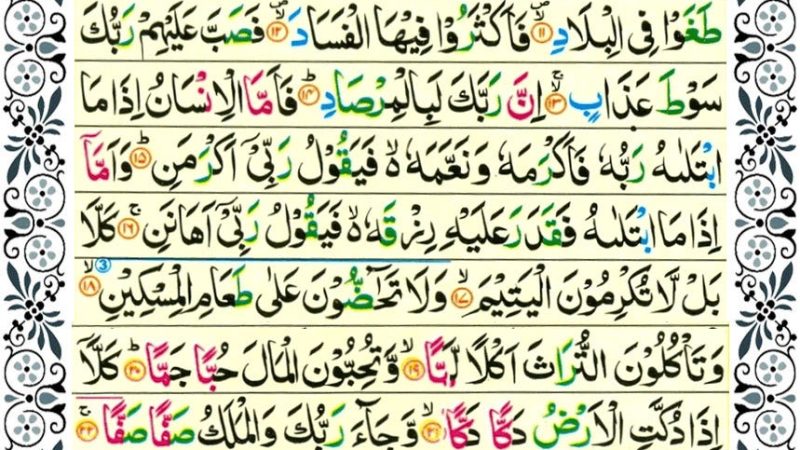 طَغَوْا فِی الْبِلَادِ ۪ۙ﴿۱۱﴾ فَاَكْثَرُوْا فِیْهَا الْفَسَادَ ۪ۙ﴿۱۲﴾ فَصَبَّ عَلَیْهِمْ رَبُّكَ
سَوْطَ عَذَابٍ ۚۙ﴿۱۳﴾ اِنَّ رَبَّكَ لَبِالْمِرْصَادِ ؕ﴿۱۴﴾ فَاَمَّا الْاِنْسَانُ اِذَا مَا
ابْتَلٰىهُ رَبُّهٗ فَاَكْرَمَهٗ وَنَعَّمَهٗ ۬ۙ فَیَقُوْلُ رَبِّیْۤ اَكْرَمَنِ ؕ﴿۱۵﴾ وَاَمَّاۤ
اِذَا مَا ابْتَلٰىهُ فَقَدَرَ عَلَیْهِ رِزْقَهٗ ۬ۙ فَیَقُوْلُ رَبِّیْۤ اَهَانَنِ ۚ﴿۱۶﴾ كَلَّا
بَلْ لَّا تُكْرِمُوْنَ الْیَتِیْمَ ۙ﴿۱۷﴾ وَلَا تَحٰٓضُّوْنَ عَلٰی طَعَامِ الْمِسْكِیْنِ ۙ﴿۱۸﴾ ③
وَتَاْكُلُوْنَ التُّرَاثَ اَكْلًا لَّمًّا ۙ﴿۱۹﴾ وَّتُحِبُّوْنَ الْمَالَ حُبًّا جَمًّا ؕ﴿۲۰﴾ كَلَّاۤ
اِذَا دُكَّتِ الْاَرْضُ دَكًّا دَكًّا ۙ﴿۲۱﴾ وَّجَآءَ رَبُّكَ وَالْمَلَكُ صَفًّا صَفًّا ۚ﴿۲۲﴾